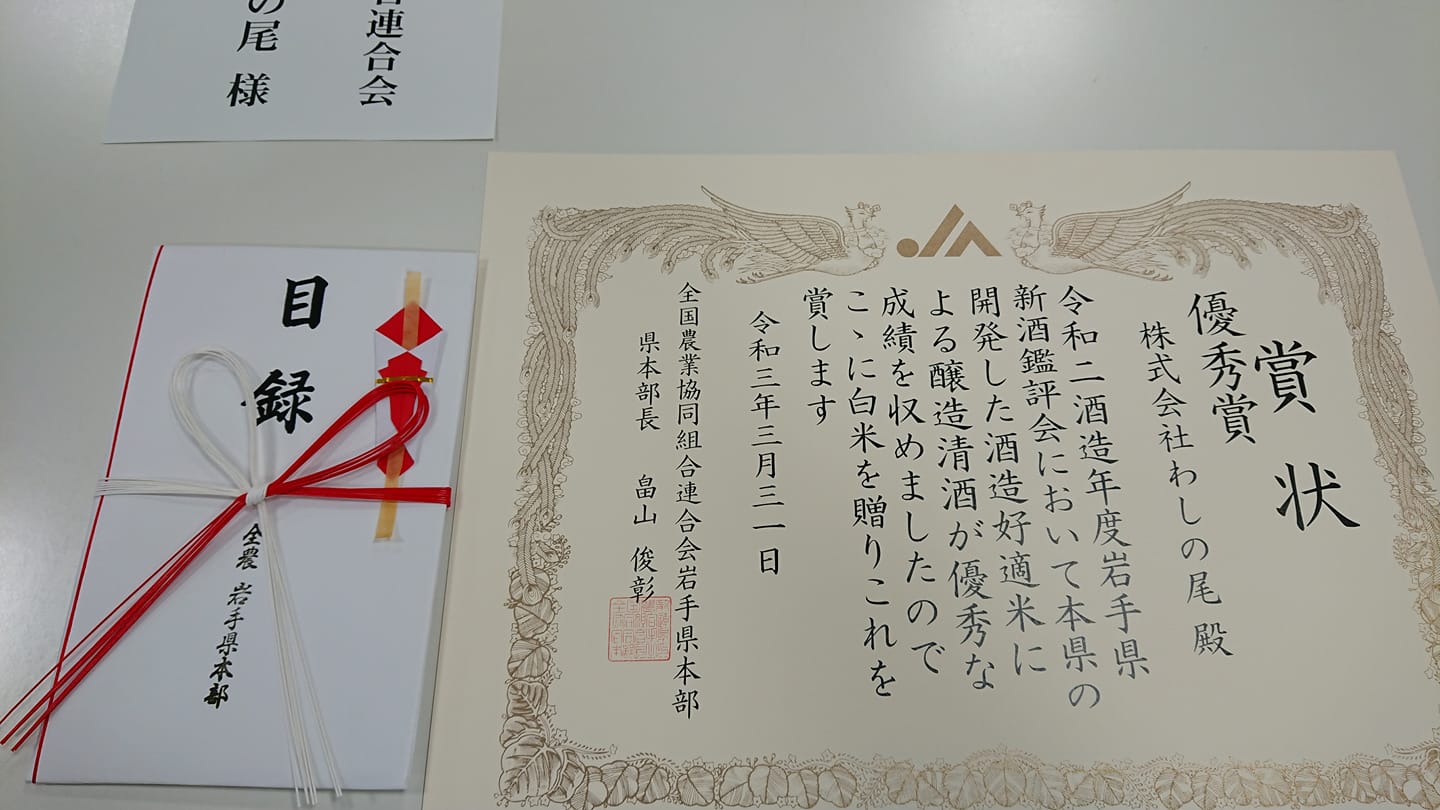 賞状
優秀賞
株式会社わしの尾 殿
令和二酒造年度岩手県
新酒鑑評会において本県の
開発した酒造好適米に
よる醸造清酒が優秀な
成績を収めましたので
こゝに白米を贈りこれを
賞します
令和三年三月三一日
全国農業協同組合連合会岩手県本部
県本部長 畠山 俊彰
連合会
の尾 様
目録
全農 岩手県本部